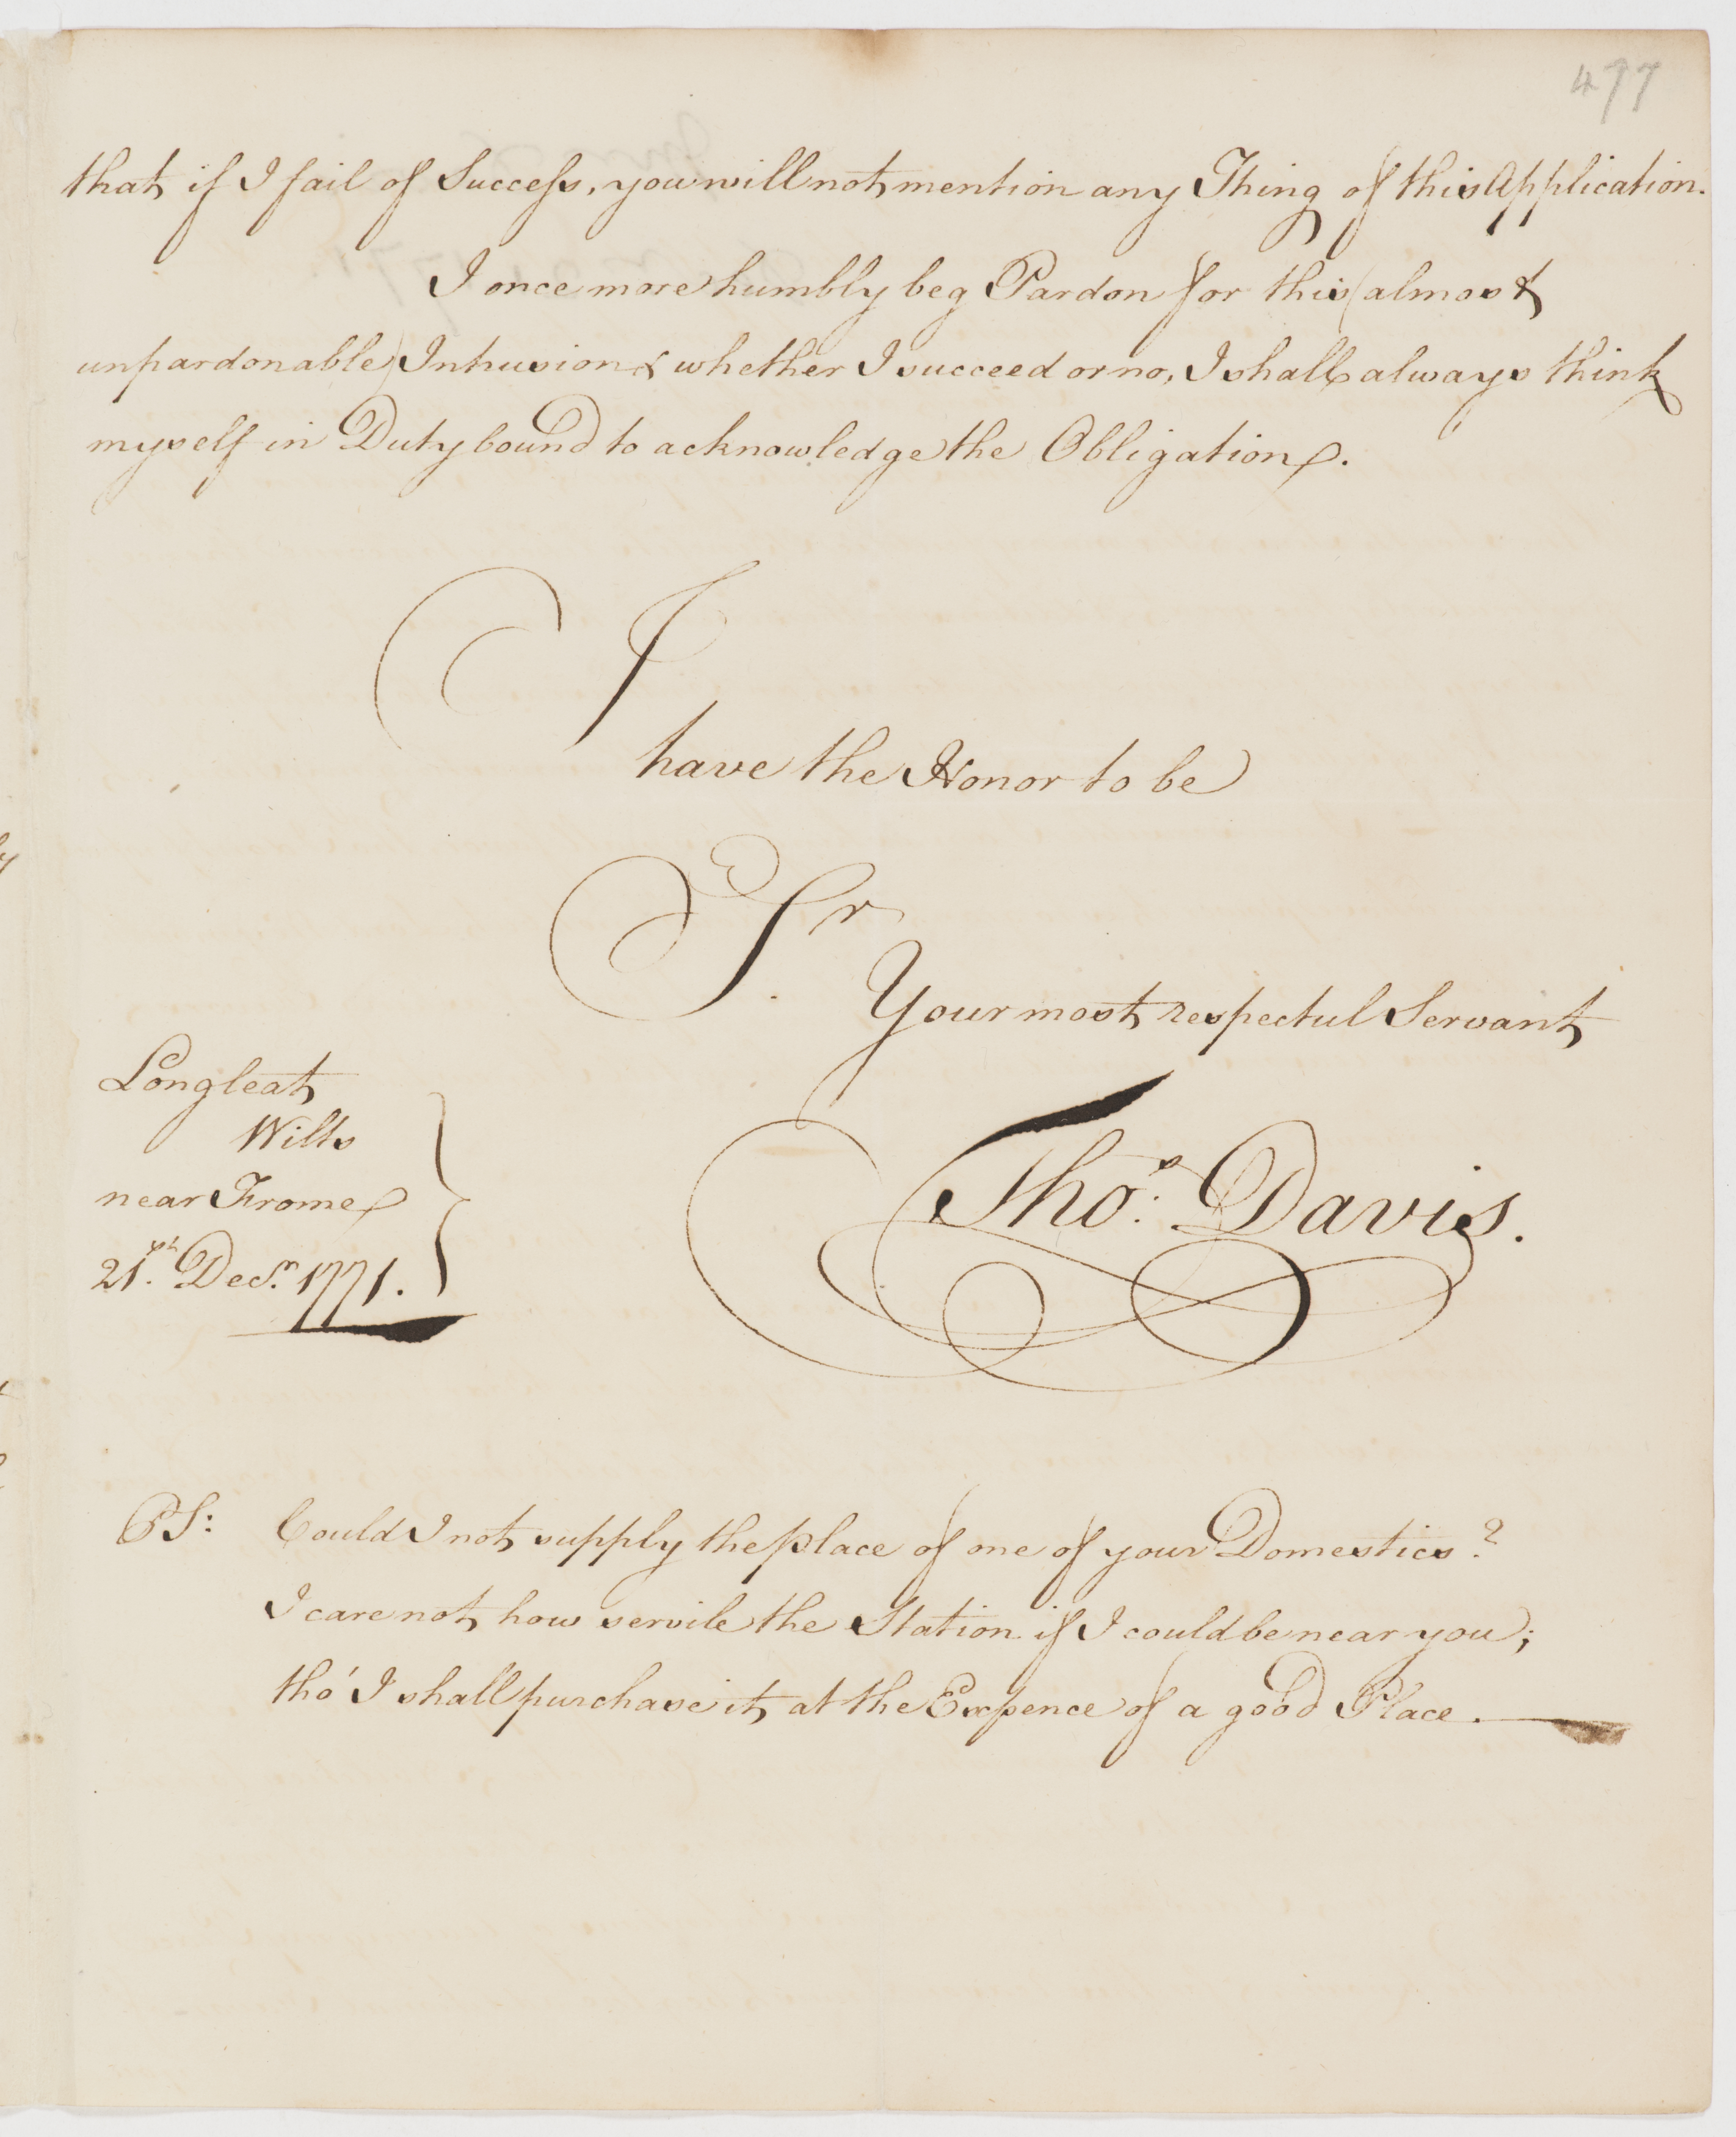 477
that if I fail of Success, you will not mention any Thing of this Application.
I once more humbly beg Pardon for this (almost
unpardonable) Intrusion & whether I succeed or no, I shall always think
myself in Duty bound to acknowledge the Obligation.
I
have the Honor to be
Sr.
Your most respectul Servant
Thos. Davis.
Longleat
Wilts
near Frome
21st. Decr. 1771.
PS: Could I not supply the place of one of your Domestics?
I care not how servile the Station if I could be near you;
tho' I shall purchase it at the Expence of a good Place.